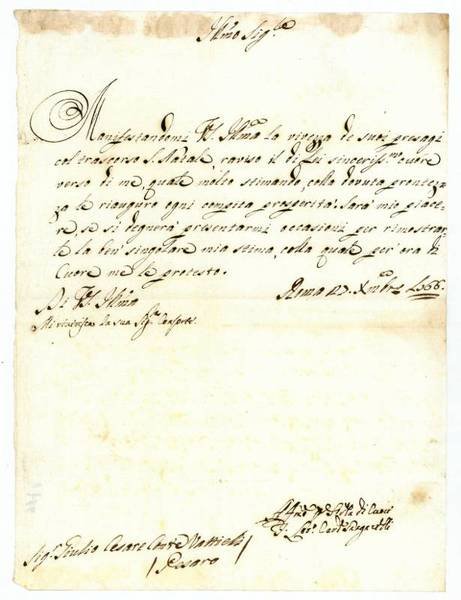 Illmo Sigre
Manifestandomi V.S. Illma la vivezza de suoi presagi
col trascorso S. Natale raviso il di Lei sincerissmo cuore
verso di me, quale molto stimando, colla dovuta prontez-
za le riauguro ogni compita prosperità. Sarà mio piace-
re, se si degnerà presentarmi occasioni per rimostrar-
le la ben singolare mia stima, colla quale per ora di
Cuore me le protesto.
Di V.S. Illma
Roma 27. Xmbre 1766.
Mi riverisca la sua Sigra Consorte.
di Cuore
Sigr Giulio Cesare Conte Mattielli
/ Pesaro /